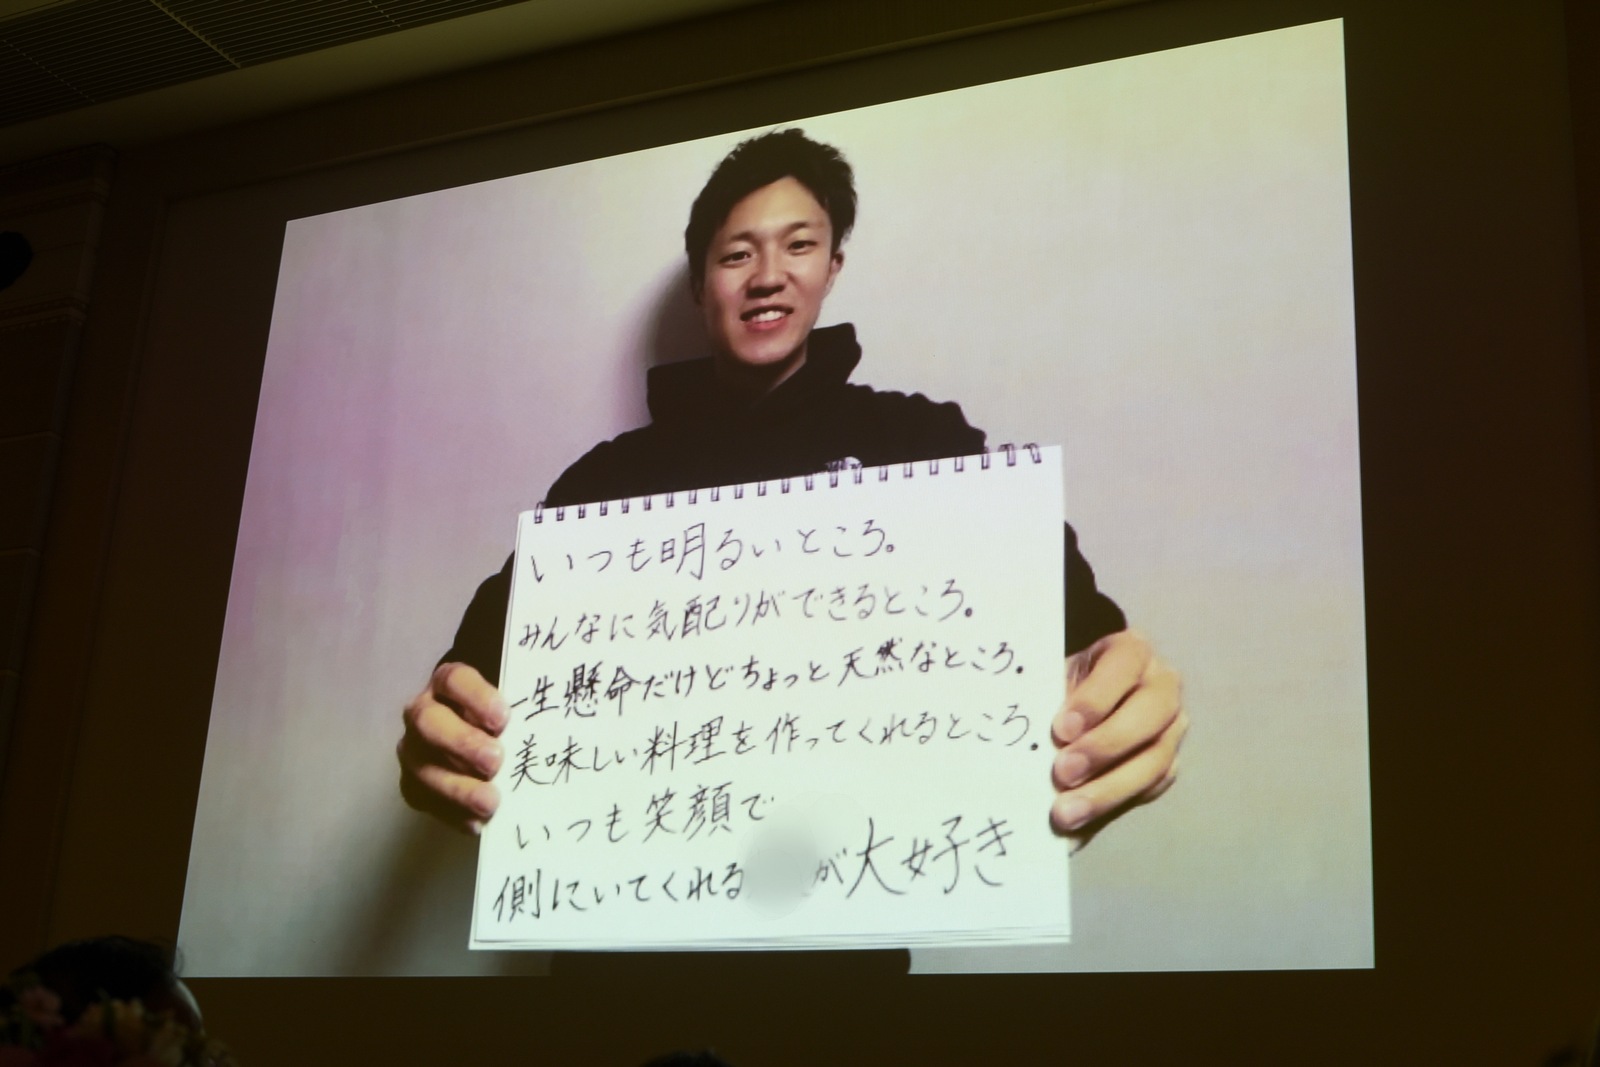 いつも明るいところ。
みんなに気配りができるところ。
一生懸命だけどちょっと天然なところ。
美味しい料理を作ってくれるところ。
いつも笑顔で
側にいてくれる が大好き